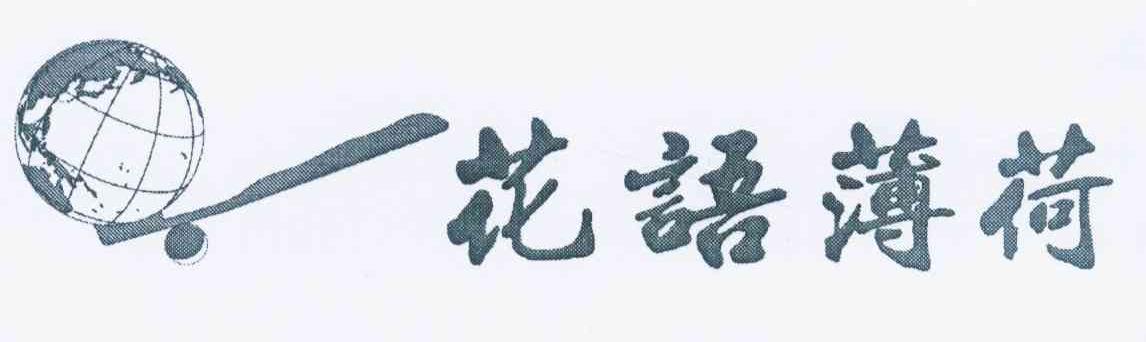 花語薄荷